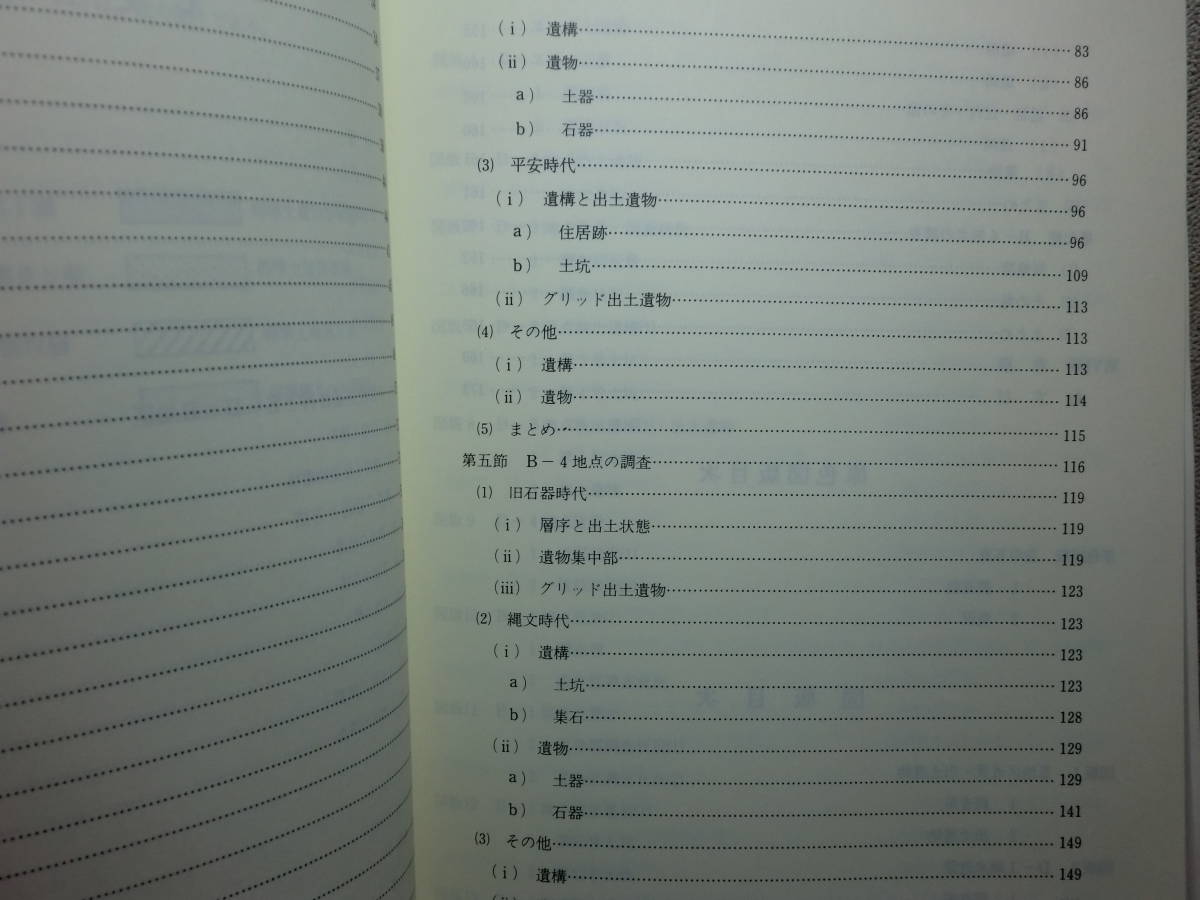 (ⅰ) 遺構……………83
(ⅱ) 遺物……………86
a) 土器……………86
b) 石器……………91
⑶ 平安時代……………96
(ⅰ) 遺構と出土遺物……………96
a) 住居跡……………96
b) 土坑……………109
(ⅱ) グリッド出土遺物……………113
⑷ その他……………113
(ⅰ) 遺構……………113
(ⅱ) 遺物……………114
⑸ まとめ……………115
第五節 B-4地点の調査……………116
⑴ 旧石器時代……………119
(ⅰ) 層序と出土状態……………119
(ⅱ) 遺物集中部……………119
(ⅲ) グリッド出土遺物……………123
⑵ 縄文時代……………123
(ⅰ) 遺構……………123
a) 土坑……………123
b) 集石……………128
(ⅱ) 遺物……………129
a) 土器……………129
b) 石器……………141
⑶ その他……………149
(ⅰ) 遺構……………149